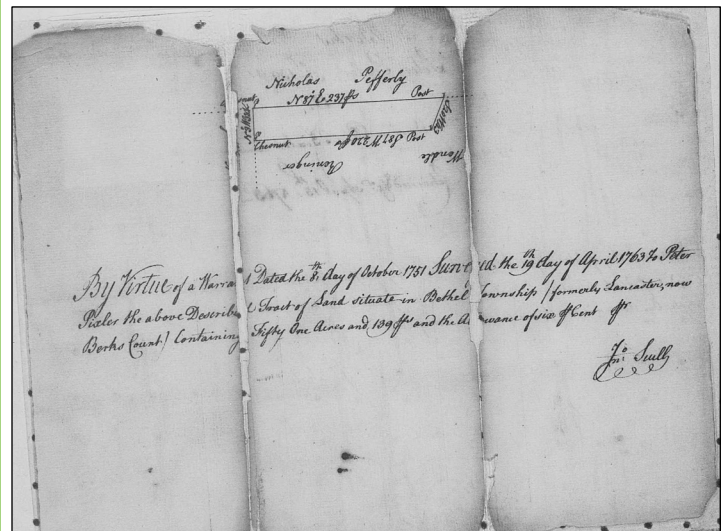 Nicholas Pefferly
N 87 E 237 ps
Post
Chesnut
S 87 W 220 ps
Post
Wendle
Reninger
By Virtue of a Warra t Dated the 8th day of October 1751 Surve ed the 19th day of April 1763 to Peter
Pixler the above Describe Tract of Land situate in Bethel Township / formerly Lancaster, now
Berks Count / Containing Fifty One Acres and 139 ps and the Al owance of six ⅌ Cent ⅌r
Jno Scull